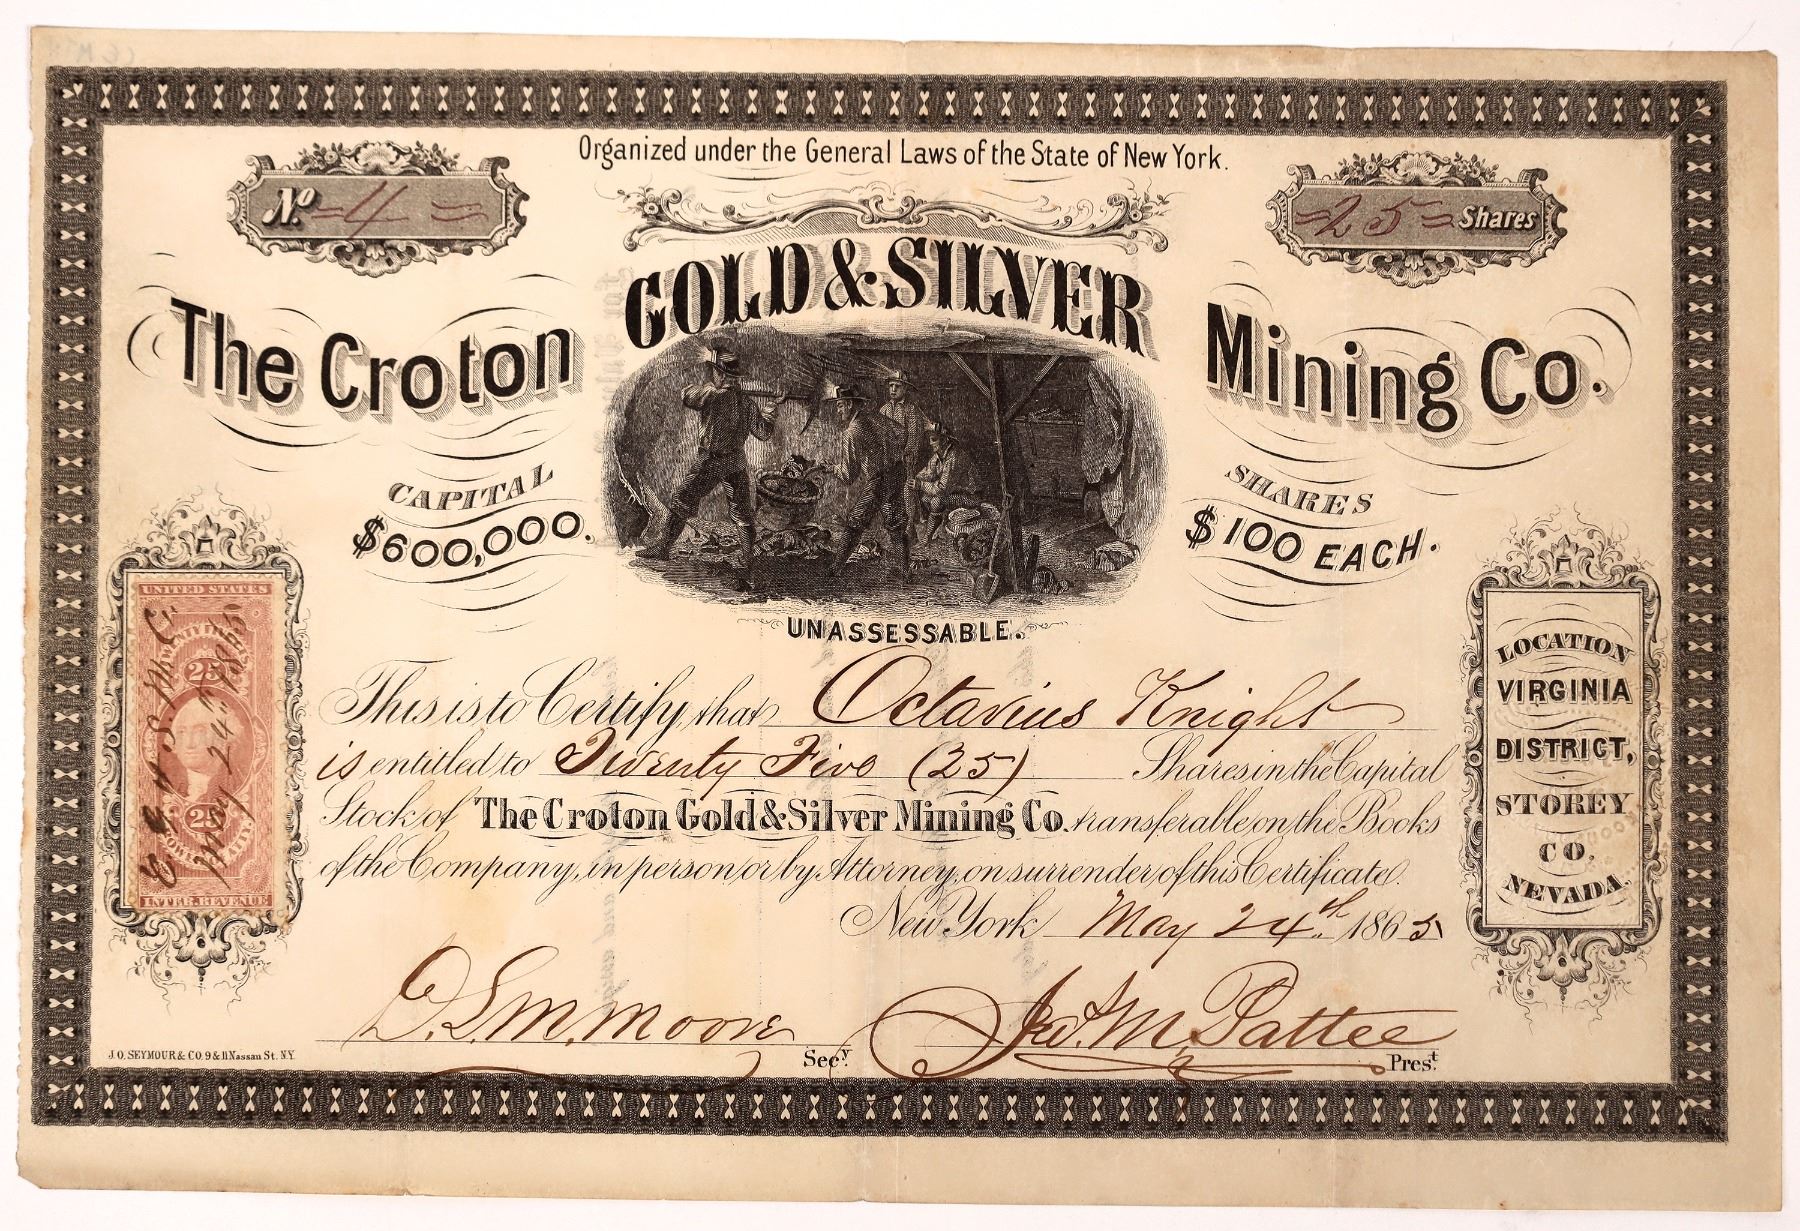 Organized under the General Laws of the State of New York.
No. = 4 =
= 25 = Shares
The Croton GOLD & SILVER Mining Co.
CAPITAL
$600,000.
SHARES
$100 EACH.
UNASSESSABLE.
UNITED STATES
25
25
INTER. REVENUE
May 24th 1865
This is to Certify, that Octavius Knight
is entitled to Twenty Five (25) Shares in the Capital
Stock of The Croton Gold & Silver Mining Co. transferable on the Books
of the Company, in person or by Attorney, on surrender of this Certificate.
New York May 24th 1865
LOCATION
VIRGINIA
DISTRICT,
STOREY
CO.
NEVADA.
Moore Secy.
M. Pattee Prest.
J. O. SEYMOUR & CO. 9 & 11 Nassau St. N.Y.